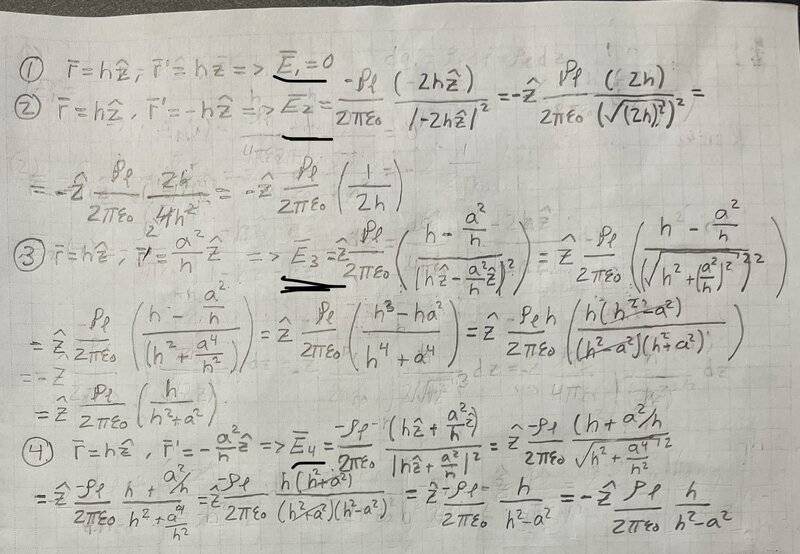 ① r̄ = hẑ, r̄' = hz̄ => Ē₁ = 0
② r̄ = hẑ, r̄' = -hẑ => Ē₂ = -ρℓ/2πε₀ (-2hẑ)/|-2hẑ|² = -ẑ ρℓ/2πε₀ (2h)/(√(2h)²)² =
= -ẑ ρℓ/2πε₀ 2h/4h² = -ẑ ρℓ/2πε₀ (1/2h)
③ r̄ = hẑ, r̄' = a²/h ẑ => Ē₃ = ẑ -ρℓ/2πε₀ ((h - a²/h)/|hẑ - a²/h ẑ|²) = ẑ -ρℓ/2πε₀ ((h² - a²/h)/(√(h² + (a²/h)²))²)
= ẑ -ρℓ/2πε₀ ((h - a²/h)/(h² + a⁴/h²)) = ẑ -ρℓ/2πε₀ ((h³ - ha²)/(h⁴ + a⁴)) = ẑ -ρℓh/2πε₀ (h(h² - a²)/((h² - a²)(h² + a²)))
= ẑ -ρℓ/2πε₀ (h/(h² + a²))
④ r̄ = hẑ, r̄' = -a²/h ẑ => Ē₄ = -ρℓ/2πε₀ (hẑ + a²/h ẑ)/|hẑ + a²/h|² = ẑ -ρℓ/2πε₀ (h + a²/h)/√(h² + a⁴/h²)²
= ẑ -ρℓ/2πε₀ (h + a²/h)/(h² + a⁴/h²) = ẑ -ρℓ/2πε₀ h(h² + a²)/((h² + a²)(h² - a²)) = ẑ -ρℓ/2πε₀ h/(h² - a²) = -ẑ ρℓ/2πε₀ h/(h² - a²)